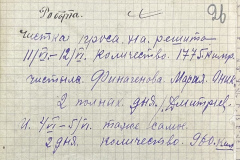 Работа. 26
чистка проса на решета
11/VI-12/VI. количество. 1775 килгр.
чистила Финагенова. Мария. Оник.
2 полных дня. Дмитриев.
и. 4/VI-5/VI. такое самое.
2 дня. количество. 960. кил